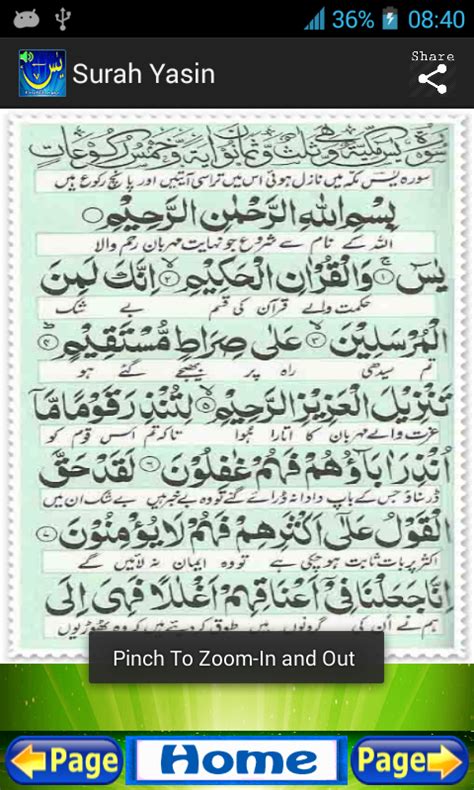 36% 08:40
Surah Yasin
Share
سورة يس مكية وهي ثلث وثمانون اية وخمس ركوعات
سورہ یٰس مکہ میں نازل ہوئی اس میں تراسی آیتیں اور پانچ رکوع ہیں
بِسْمِ اللّٰهِ الرَّحْمٰنِ الرَّحِيْمِ
اللہ کے نام سے شروع جو نہایت مہربان رحم والا
يٰسٓ ۝۱ وَالْقُرْاٰنِ الْحَكِيْمِ ۝۲ اِنَّكَ لَمِنَ
حکمت والے قرآن کی قسم بے شک
الْمُرْسَلِيْنَ ۝۳ عَلٰى صِرَاطٍ مُّسْتَقِيْمٍ ۝۴
تم سیدھی راہ پر بھیجے گئے ہو
تَنْزِيْلَ الْعَزِيْزِ الرَّحِيْمِ ۝۵ لِتُنْذِرَ قَوْمًا مَّآ
عزت والے مہربان کا اتارا ہوا تاکہ تم اس قوم کو
اُنْذِرَ اٰبَآؤُهُمْ فَهُمْ غٰفِلُوْنَ ۝۶ لَقَدْ حَقَّ
ڈر سناؤ جس کے باپ دادا نہ ڈرائے گئے تو وہ بے خبر ہیں بے شک ان میں
الْقَوْلُ عَلٰٓى اَكْثَرِهِمْ فَهُمْ لَا يُؤْمِنُوْنَ ۝۷
اکثر پر بات ثابت ہو چکی ہے تو وہ ایمان نہ لائیں گے
اِنَّا جَعَلْنَا فِيْٓ اَعْنَاقِهِمْ اَغْلٰلًا فَهِيَ اِلَى
ہم نے ان کی گردنوں میں طوق کر دیئے ہیں کہ وہ ٹھوڑیوں
Pinch To Zoom-In and Out
Page Home Page